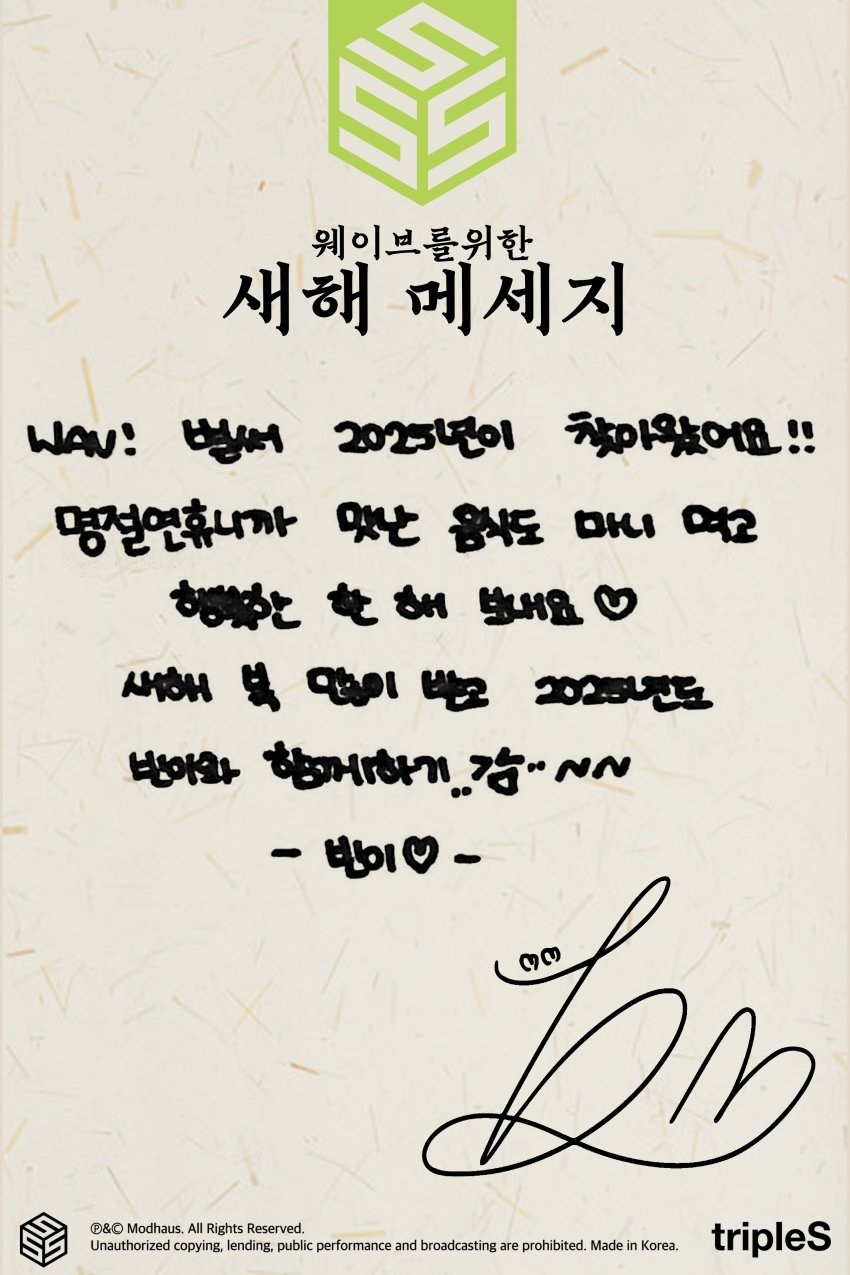 웨이브를위한
새해 메세지
WAV! 벌써 2025년이 찾아왔어요!!
명절연휴니까 맛난 음식도 마니 먹고
행복한 한 해 보내요♡
새해 복 많이 받고 2025년도
빈이와 함께하기..감..~~
- 빈이♡ -
℗&© Modhaus. All Rights Reserved.
Unauthorized copying, lending, public performance and broadcasting are prohibited. Made in Korea.
tripleS